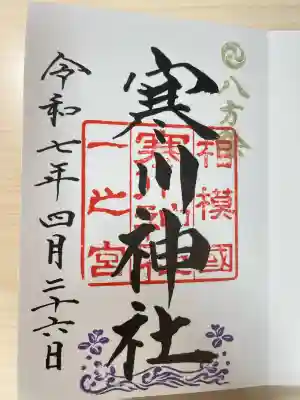 八方除
寒川神社
相模國
寒川神社
一之宮
令和七年四月二十六日